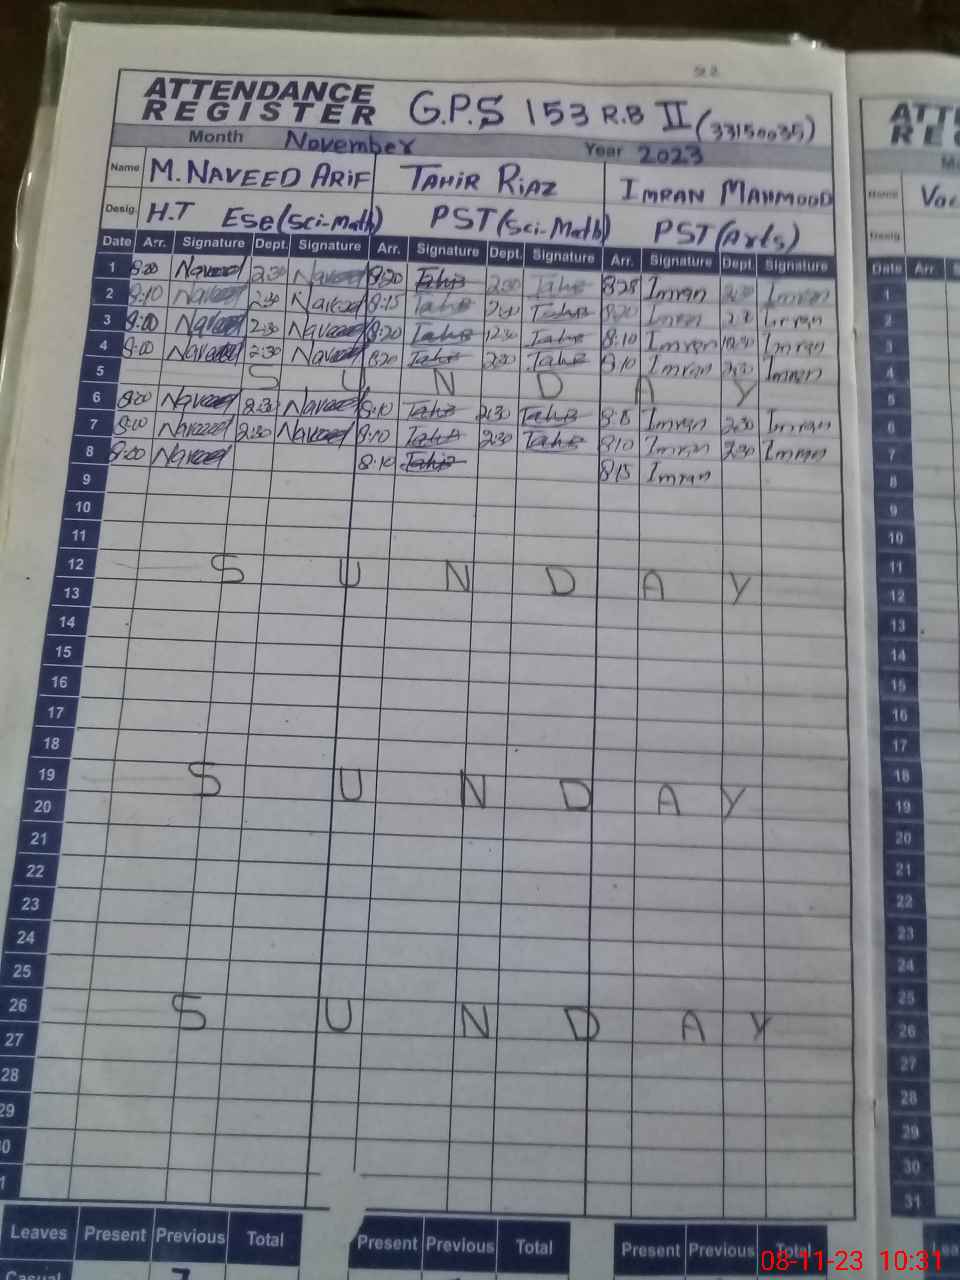 ATTENDANCE REGISTER G.P.S 153 R.B II (33150035)
Month November Year 2023
Name M. NAVEED ARIF TAHIR RIAZ IMRAN MAHMOOD
Desig. H.T Ese(Sci-Math) PST(Sci-Math) PST(Arts)
Date Arr. Signature Dept. Signature Arr. Signature Dept. Signature Arr. Signature Dept. Signature
1 8:00 Naveed 2:30 Naveed 8:20 Tahir 2:30 Tahir Imran 2:30 Imran
2 8:10 Naveed 2:30 Naveed 8:15 Tahir 2:30 Tahir 8:20 Imran Imran
3 8:00 Naveed 2:30 Naveed 8:20 Tahir 12:30 Tahir 8:10 Imran 12:30 Imran
4 8:00 Naveed 2:30 Naveed 8:20 Tahir 2:30 Tahir 8:10 Imran 2:30 Imran
5 S U N D A Y
6 8:00 Naveed 2:30 Naveed 8:10 Tahir 2:30 Tahir 8:15 Imran 2:30 Imran
7 8:00 Naveed 2:30 Naveed 8:10 Tahir 2:30 Tahir 8:10 Imran 2:30 Imran
8 8:00 Naveed 8:10 Tahir 8:15 Imran
9
10
11
12 S U N D A Y
13
14
15
16
17
18
19 S U N D A Y
20
21
22
23
24
25
26 S U N D A Y
27
28
29
Leaves Present Previous Total Present Previous Total Present Previous Total
Casual
Date Arr.
1
2
3
4
5
6
7
8
9
10
11
12
13
14
15
16
17
18
19
20
21
22
23
24
25
26
27
28
29
30
31
08-11-23 10:31